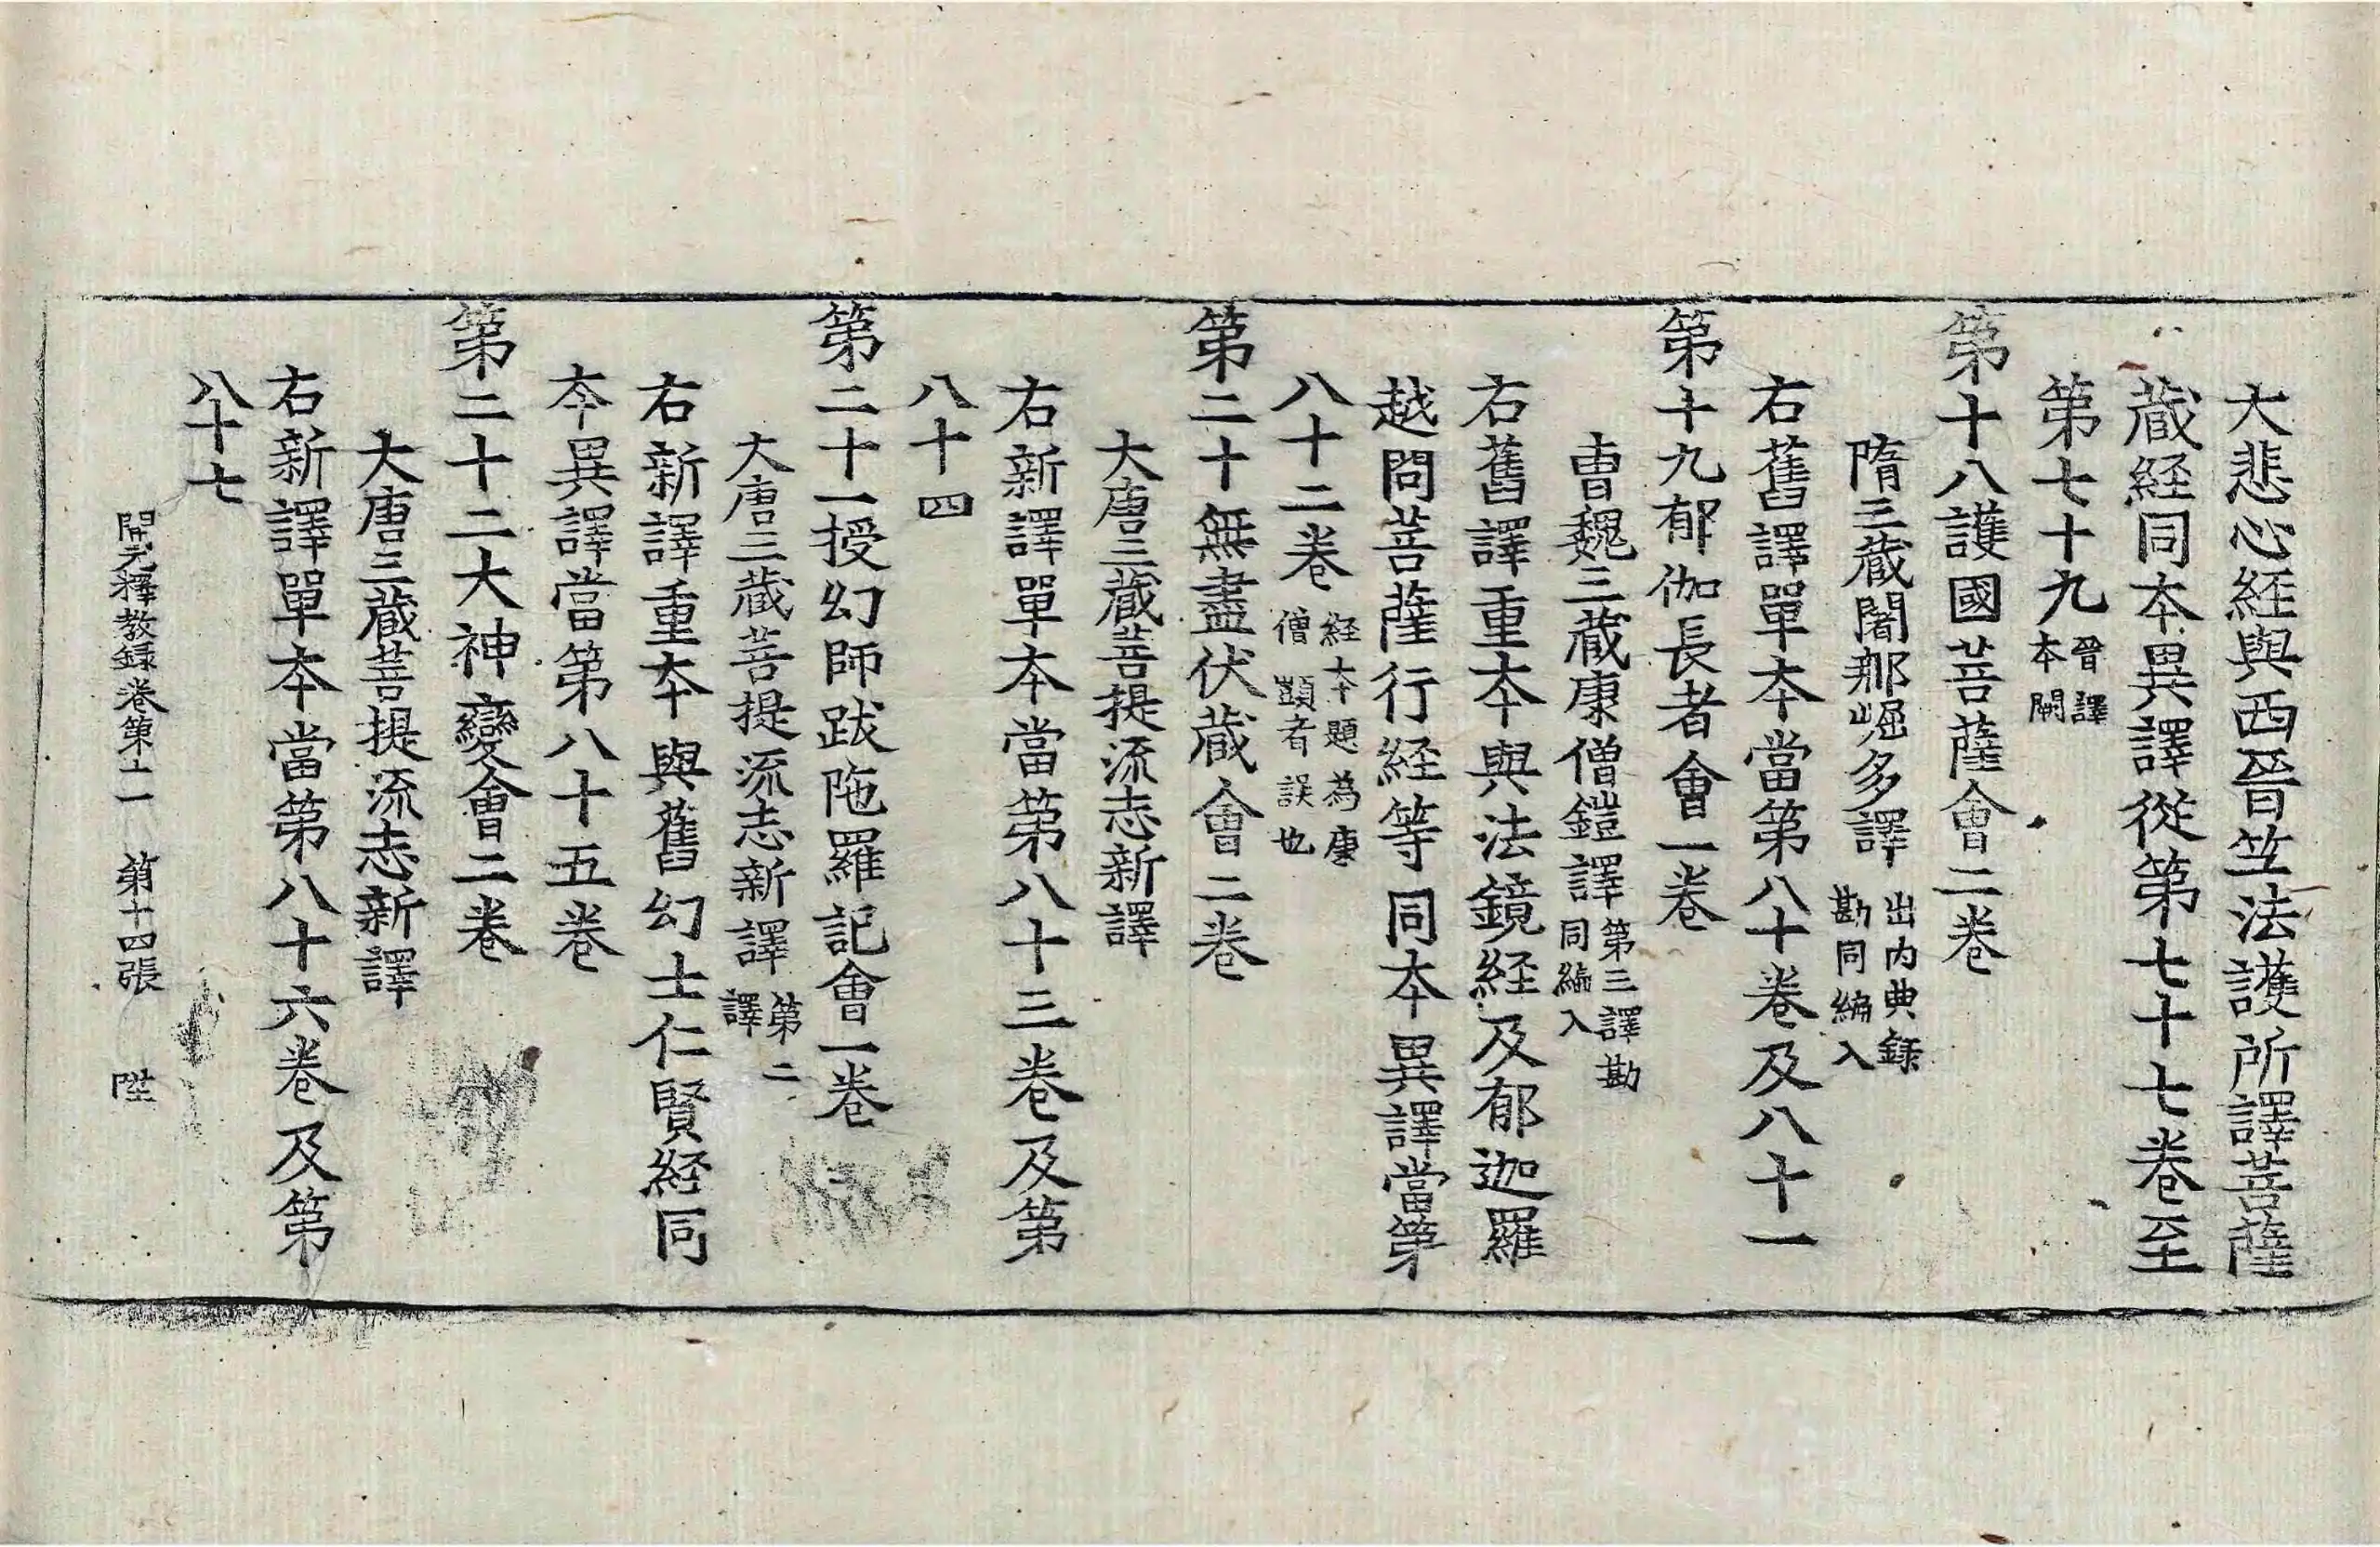 大悲心経與西晉竺法護所譯菩薩
藏経同本異譯從第七十七卷至
第七十九晉譯本闕
第十八護國菩薩會二卷
隋三藏闍那崛多譯出内典録勘同編入
右舊譯單本當第八十卷及八十一
第十九郁伽長者會一卷
曹魏三藏康僧鎧譯第三譯勘同編入
右舊譯重本與法鏡経及郁迦羅
越問菩薩行経等同本異譯當第
八十二卷経本題為康僧顗者誤也
第二十無盡伏藏會二卷
大唐三藏菩提流志新譯
右新譯單本當第八十三卷及第
八十四
第二十一授幻師跋陁羅記會一卷
大唐三藏菩提流志新譯第二譯
右新譯重本與舊幻士仁賢経同
本異譯當第八十五卷
第二十二大神變會二卷
大唐三藏菩提流志新譯
右新譯單本當第八十六卷及第
八十七
開元釋教録卷第十一 第十四張 陛